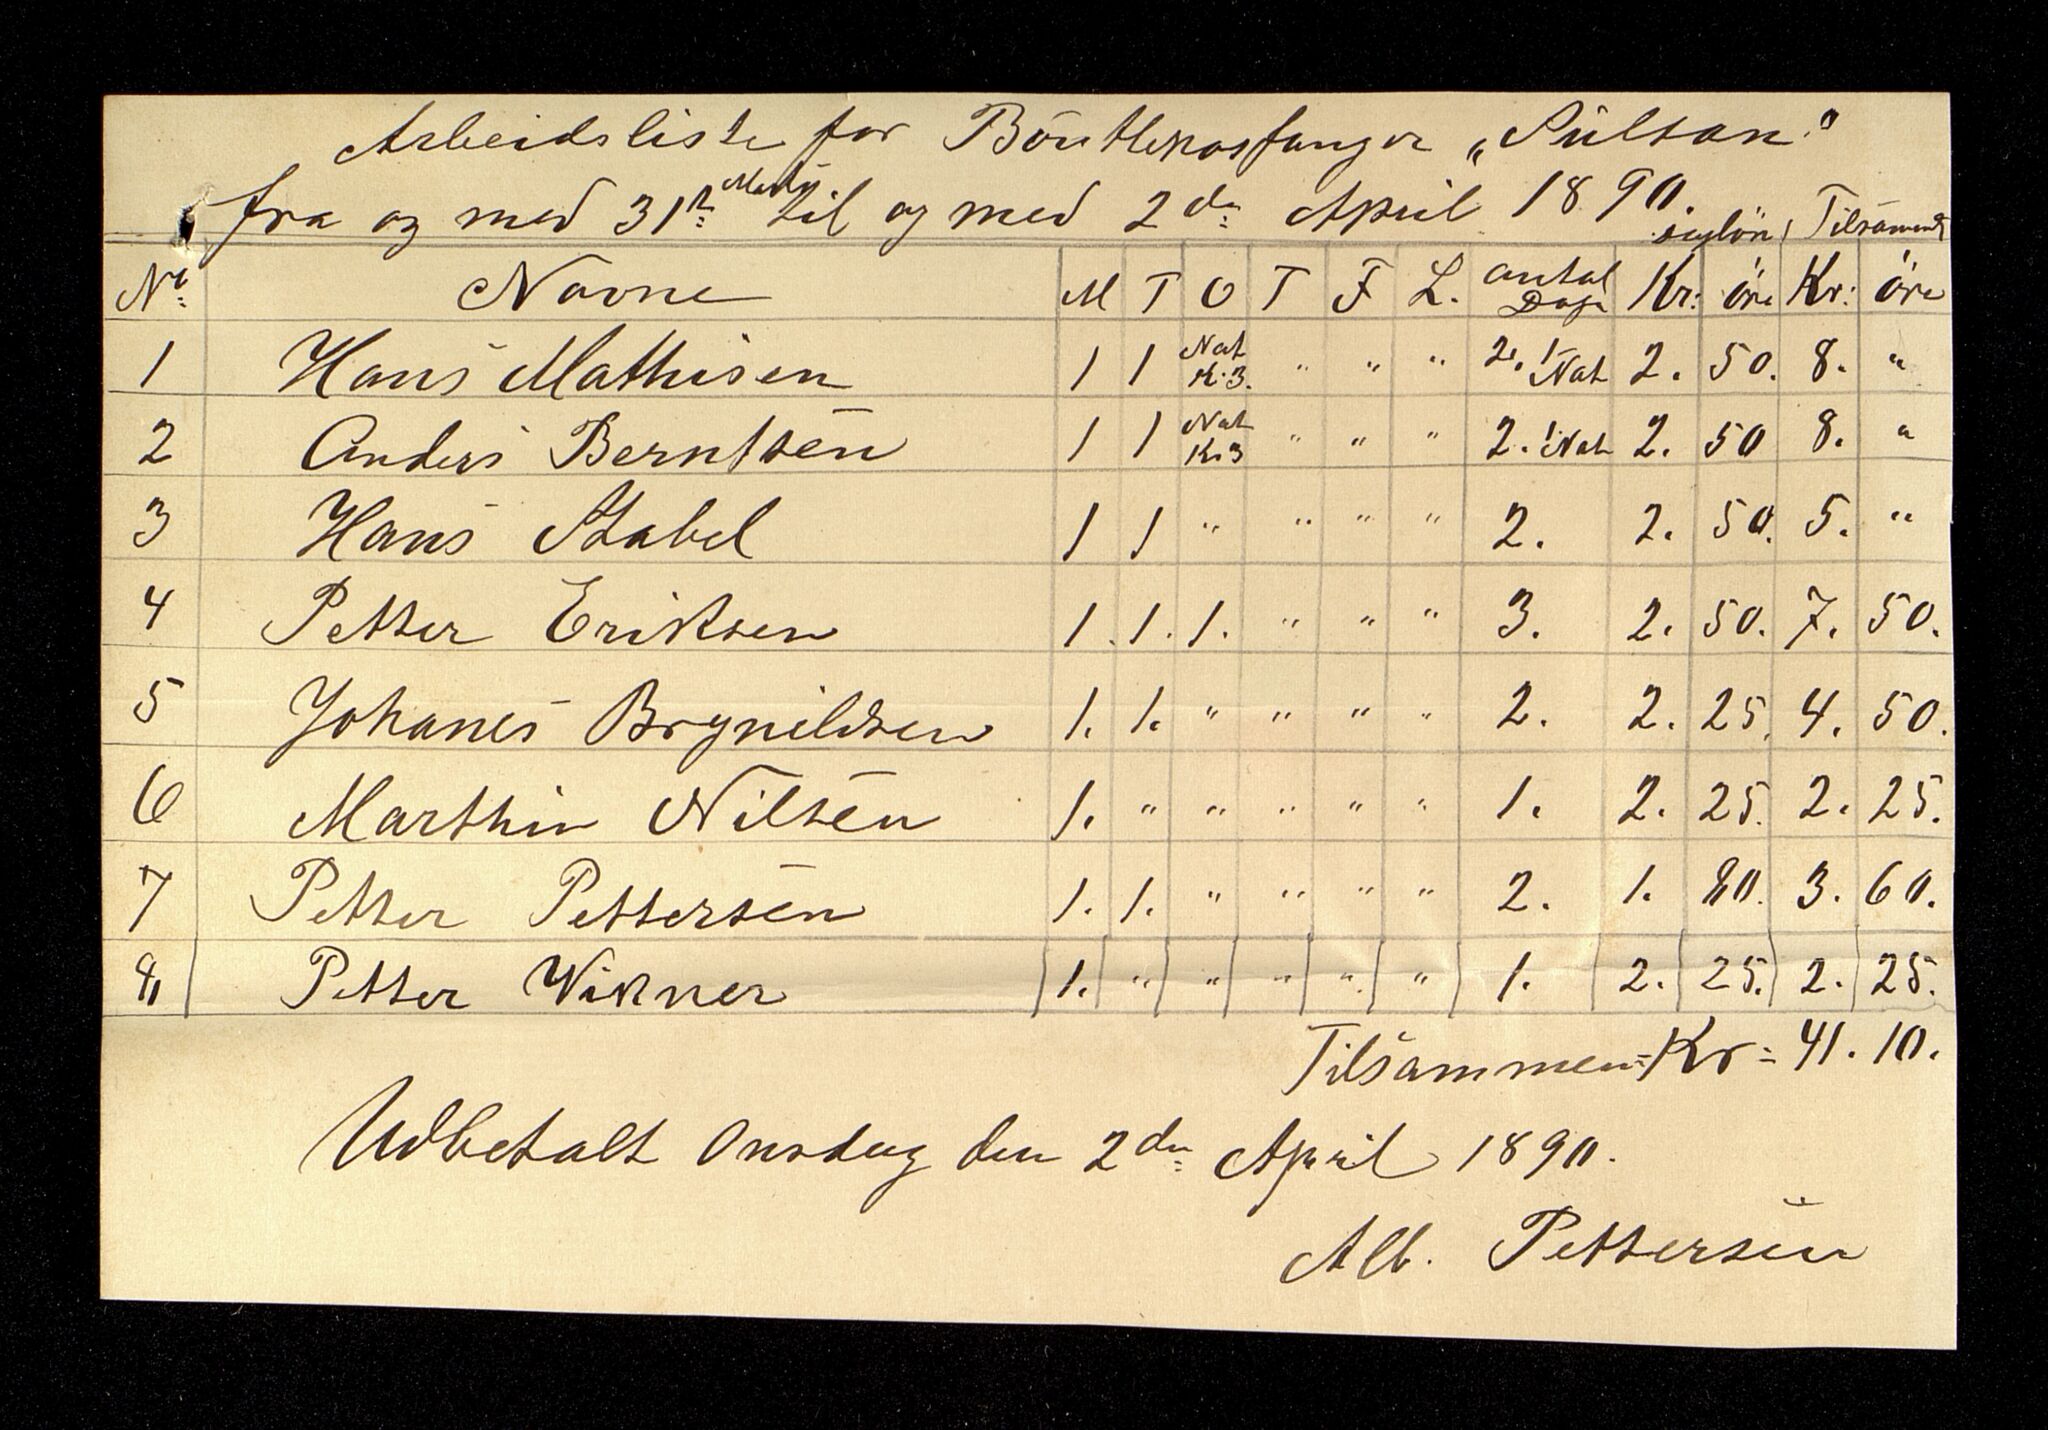 Arbeidsliste for Böntlenosfanger „Sultan"
fra og med 31te Marts til og med 2den April 1890.
Daglön Tilsamend
No: Navne M T O T F L. antal Dage Kr: öre Kr: öre
1 Hans Mathisen 1 1 Nat K.3. " " " 2. 1 Nat 2. 50. 8. "
2 Anders Berntsen 1 1 Nat K.3 " " " 2. 1 Nat 2. 50 8. "
3 Hans Stabel 1 1 " " " " 2. 2. 50. 5. "
4 Petter Eriksen 1. 1. 1. " " " 3. 2. 50. 7. 50.
5 Johanes Brynildsen 1. 1. " " " " 2. 2. 25. 4. 50.
6 Marthin Nilsen 1. " " " " " 1. 2. 25. 2. 25.
7 Petter Pettersen 1. 1. " " " " 2. 1. 80. 3. 60.
8, Petter Wikner 1. " " " " " 1. 2. 25. 2. 25.
Tilsammen = Kr = 41. 10.
Udbetalt Onsdag den 2den April 1890.
Alb. Pettersen